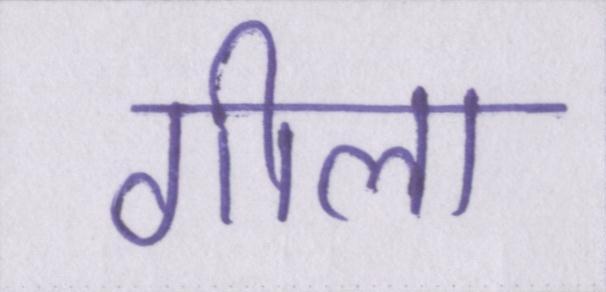 गीला